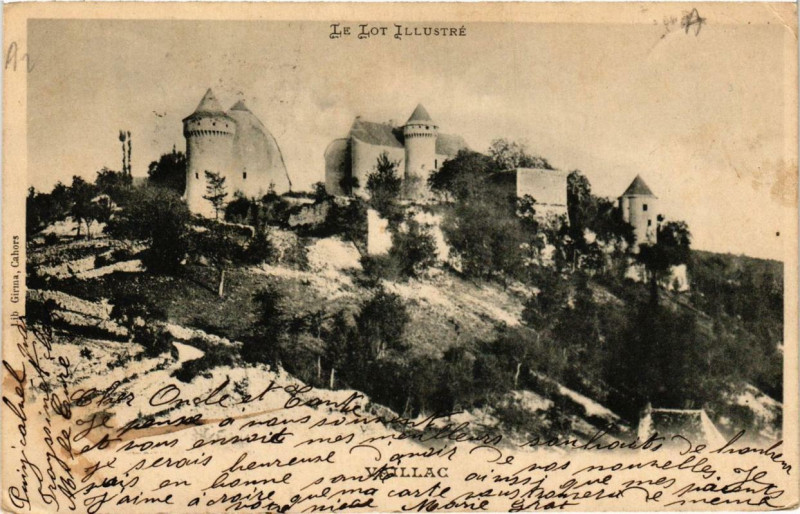 LE LOT ILLUSTRÉ
Lib Girma, Cahors
Cher Oncle et Tante
Je pense a vous souvent
et vous envoie mes meilleurs souhaits de bonheur
je serais heureuse d'avoir de vos nouvelles. Je
vais en bonne santé ainsi que mes parents
J'aime à croire que ma carte vous trouvera de même
votre nièce Marie
VAILLAC